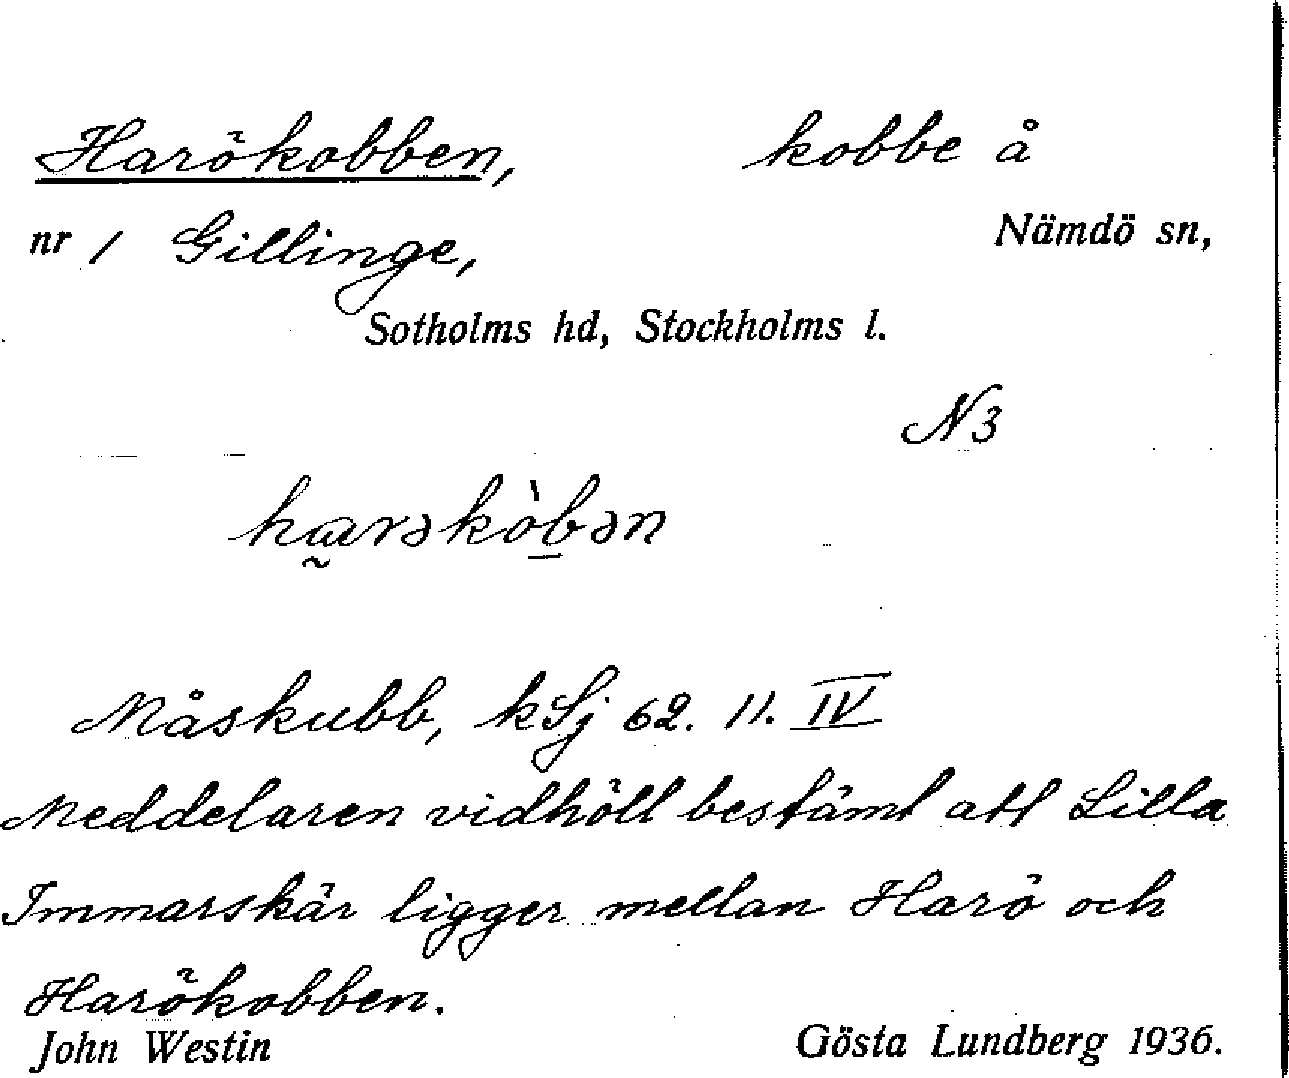 Harökobben, kobbe å
nr 1 Gillinge, Nämdö sn,
Sotholms hd, Stockholms l.
N3
Måskubb, kSj 62. 11. IV
Meddelaren vidhöll bestämt att Lilla
Immarskär ligger mellan Harö och
Harökobben.
John Westin Gösta Lundberg 1936.